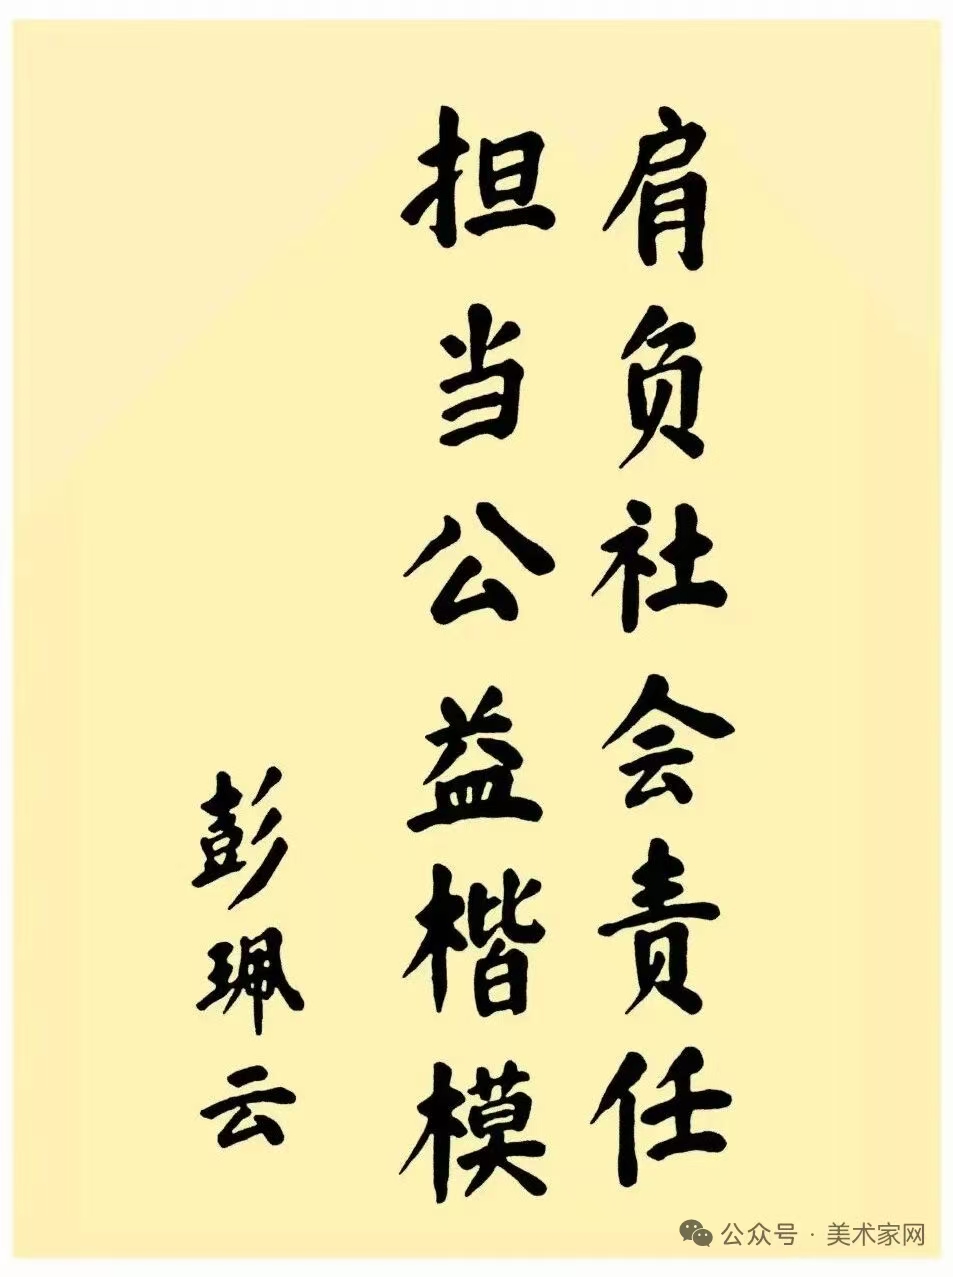 肩负社会责任
担当公益楷模
彭珮云
公众号 · 美术家网